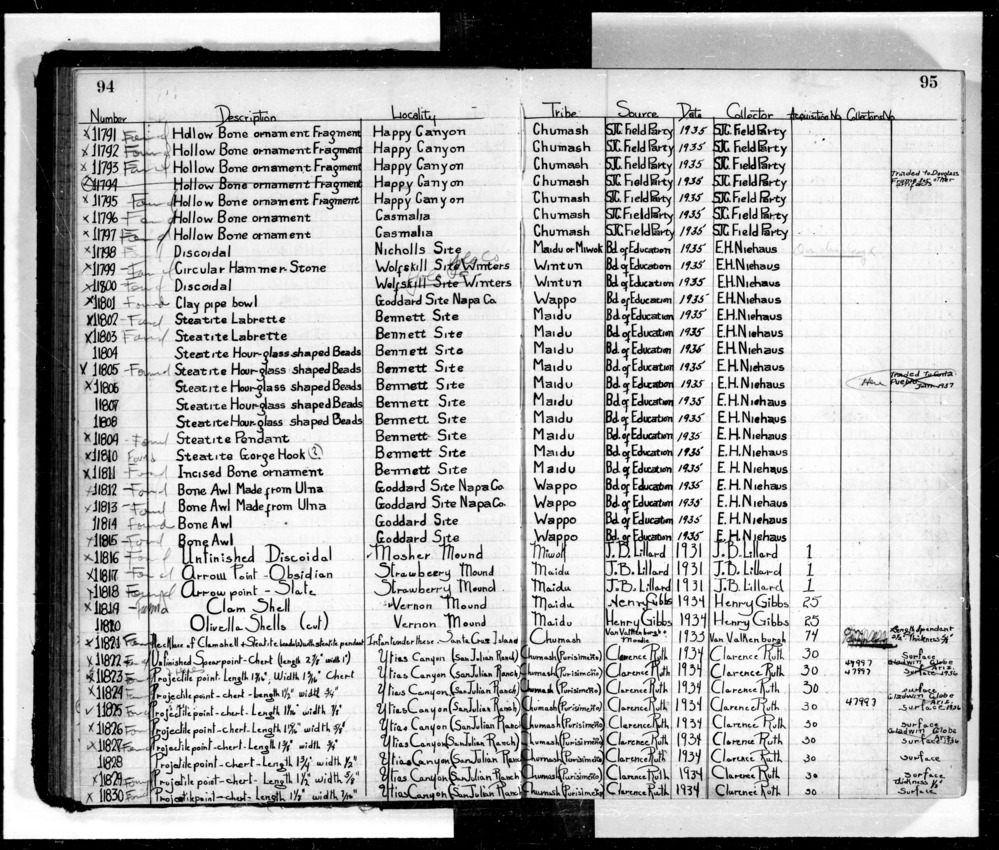 94
95
Number Description Locality Tribe Source Date Collector Acquisition No Collectors No
x 11791 Found Hollow Bone ornament Fragment Happy Canyon Chumash SJC Field Party 1935 SJC Field Party
x 11792 Found Hollow Bone ornament Fragment Happy Canyon Chumash SJC Field Party 1935 SJC Field Party
x 11793 Found Hollow Bone ornament Fragment Happy Canyon Chumash SJC Field Party 1935 SJC Field Party
11794 Hollow Bone ornament Fragment Happy Canyon Chumash SJC Field Party 1935 SJC Field Party Traded to Douglass
x 11795 Found Hollow Bone ornament Fragment Happy Canyon Chumash SJC Field Party 1935 SJC Field Party
x 11796 Found Hollow Bone ornament Casmalia Chumash SJC Field Party 1935 SJC Field Party
x 11797 Found Hollow Bone ornament Casmalia Chumash SJC Field Party 1935 SJC Field Party
x 11798 Discoidal Nicholls Site Maidu or Miwok Bd. of Education 1935 E.H. Niehaus
x 11799 Found Circular Hammer Stone Wolfskill Site Winters Wintun Bd. of Education 1935 E.H. Niehaus
x 11800 Found Discoidal Wolfskill Site Winters Wintun Bd. of Education 1935 E.H. Niehaus
x 11801 Found Clay pipe bowl Goddard Site Napa Co. Wappo Bd. of Education 1935 E.H. Niehaus
x 11802 - Found Steatite Labrette Bennett Site Maidu Bd. of Education 1935 E.H. Niehaus
x 11803 Found Steatite Labrette Bennett Site Maidu Bd. of Education 1935 E.H. Niehaus
11804 Steatite Hour-glass shaped Beads Bennett Site Maidu Bd. of Education 1935 E.H. Niehaus
11805 - Found Steatite Hourglass shaped Beads Bennett Site Maidu Bd. of Education 1935 E.H. Niehaus
x 11806 Steatite Hourglass shaped Beads Bennett Site Maidu Bd. of Education 1935 E.H. Niehaus Traded to
11807 Steatite Hourglass shaped Beads Bennett Site Maidu Bd. of Education 1935 E.H. Niehaus
11808 Steatite Hourglass shaped Beads Bennett Site Maidu Bd. of Education 1935 E.H. Niehaus
x 11809 - Found Steatite Pendant Bennett Site Maidu Bd. of Education 1935 E.H. Niehaus
x 11810 Found Steatite Gorge Hook (?) Bennett Site Maidu Bd. of Education 1935 E.H. Niehaus
x 11811 Found Incised Bone ornament Bennett Site Maidu Bd. of Education 1935 E.H. Niehaus
11812 - Found Bone Awl Made from Ulna Goddard Site Napa Co. Wappo Bd. of Education 1935 E.H. Niehaus
x 11813 - Found Bone Awl Made from Ulna Goddard Site Napa Co. Wappo Bd. of Education 1935 E.H. Niehaus
11814 Found Bone Awl Goddard Site Wappo Bd. of Education 1935 E.H. Niehaus
11815 - Found Bone Awl Goddard Site Wappo Bd. of Education 1935 E.H. Niehaus
x 11816 Found Unfinished Discoidal Mosher Mound Miwok J.B. Lillard 1931 J.B. Lillard 1
x 11817 Found Arrow Point - Obsidian Strawberry Mound Maidu J.B. Lillard 1931 J.B. Lillard 1
11818 Found Arrow point - Slate Strawberry Mound Maidu J.B. Lillard 1931 J.B. Lillard 1
x 11819 - Found Clam Shell Vernon Mound Maidu Henry Gibbs 1934 Henry Gibbs 25
11820 Olivella Shells (cut) Vernon Mound Maidu Henry Gibbs 1934 Henry Gibbs 25
x 11821 Found Necklace of Clamshell & Steatite beads with steatite pendant Santa Cruz Island Chumash Van Valkenburgh & Moodie 1933 Van Valkenburgh 74 Length of pendant
x 11822 Found Unfinished Spearpoint - Chert (length 2 7/8" width 1") Ytias Canyon (San Julian Ranch) Chumash (Purisimeño) Clarence Ruth 1934 Clarence Ruth 30 Surface
x 11823 Found Projectile point Chert Ytias Canyon (San Julian Ranch) Chumash (Purisimeño) Clarence Ruth 1934 Clarence Ruth 30 47997 Gladwin Globe Ariz. Surface 1936
x 11824 Found Projectile point - chert - Length width Ytias Canyon (San Julian Ranch) Chumash (Purisimeño) Clarence Ruth 1934 Clarence Ruth 30 Surface
11825 Found Projectile point - chert - Length width Ytias Canyon (San Julian Ranch) Chumash (Purisimeño) Clarence Ruth 1934 Clarence Ruth 30 47997 Gladwin Globe Ariz. Surface 1936
x 11826 Found Projectile point - chert - Length width Ytias Canyon (San Julian Ranch) Chumash (Purisimeño) Clarence Ruth 1934 Clarence Ruth 30 Surface
x 11827 Found Projectile point - chert - Length width Ytias Canyon (San Julian Ranch) Chumash (Purisimeño) Clarence Ruth 1934 Clarence Ruth 30 Gladwin Globe Surface 1936
11828 Projectile point - chert - Length 1 3/4" width 1/2" Ytias Canyon (San Julian Ranch) Chumash (Purisimeño) Clarence Ruth 1934 Clarence Ruth 30 Surface
x 11829 Found Projectile point - chert - Length width Ytias Canyon (San Julian Ranch) Chumash (Purisimeño) Clarence Ruth 1934 Clarence Ruth 30 Surface
x 11830 Found Projectile point - chert - Length 1 1/2" width Ytias Canyon (San Julian Ranch) Chumash (Purisimeño) Clarence Ruth 1934 Clarence Ruth 30 Surface